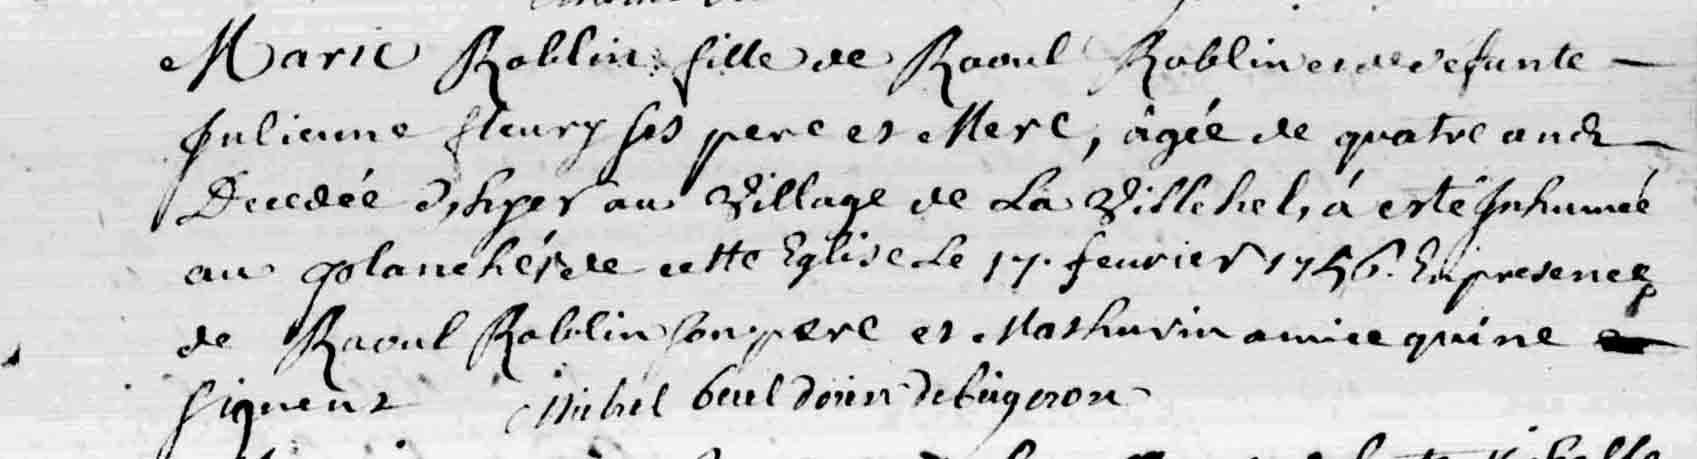 Marie Roblin fille de Raoul Roblin et de defunte
Julienne fleury ses pere et Mere, âgée de quatre ans
Decedée d'hyer au Village de La Villehel, á esté Inhumée
au planchér de cette Eglise Le 17. feurier 1756. En presence
de Raoul Roblin son pere et Mathurin amice qui ne
signent